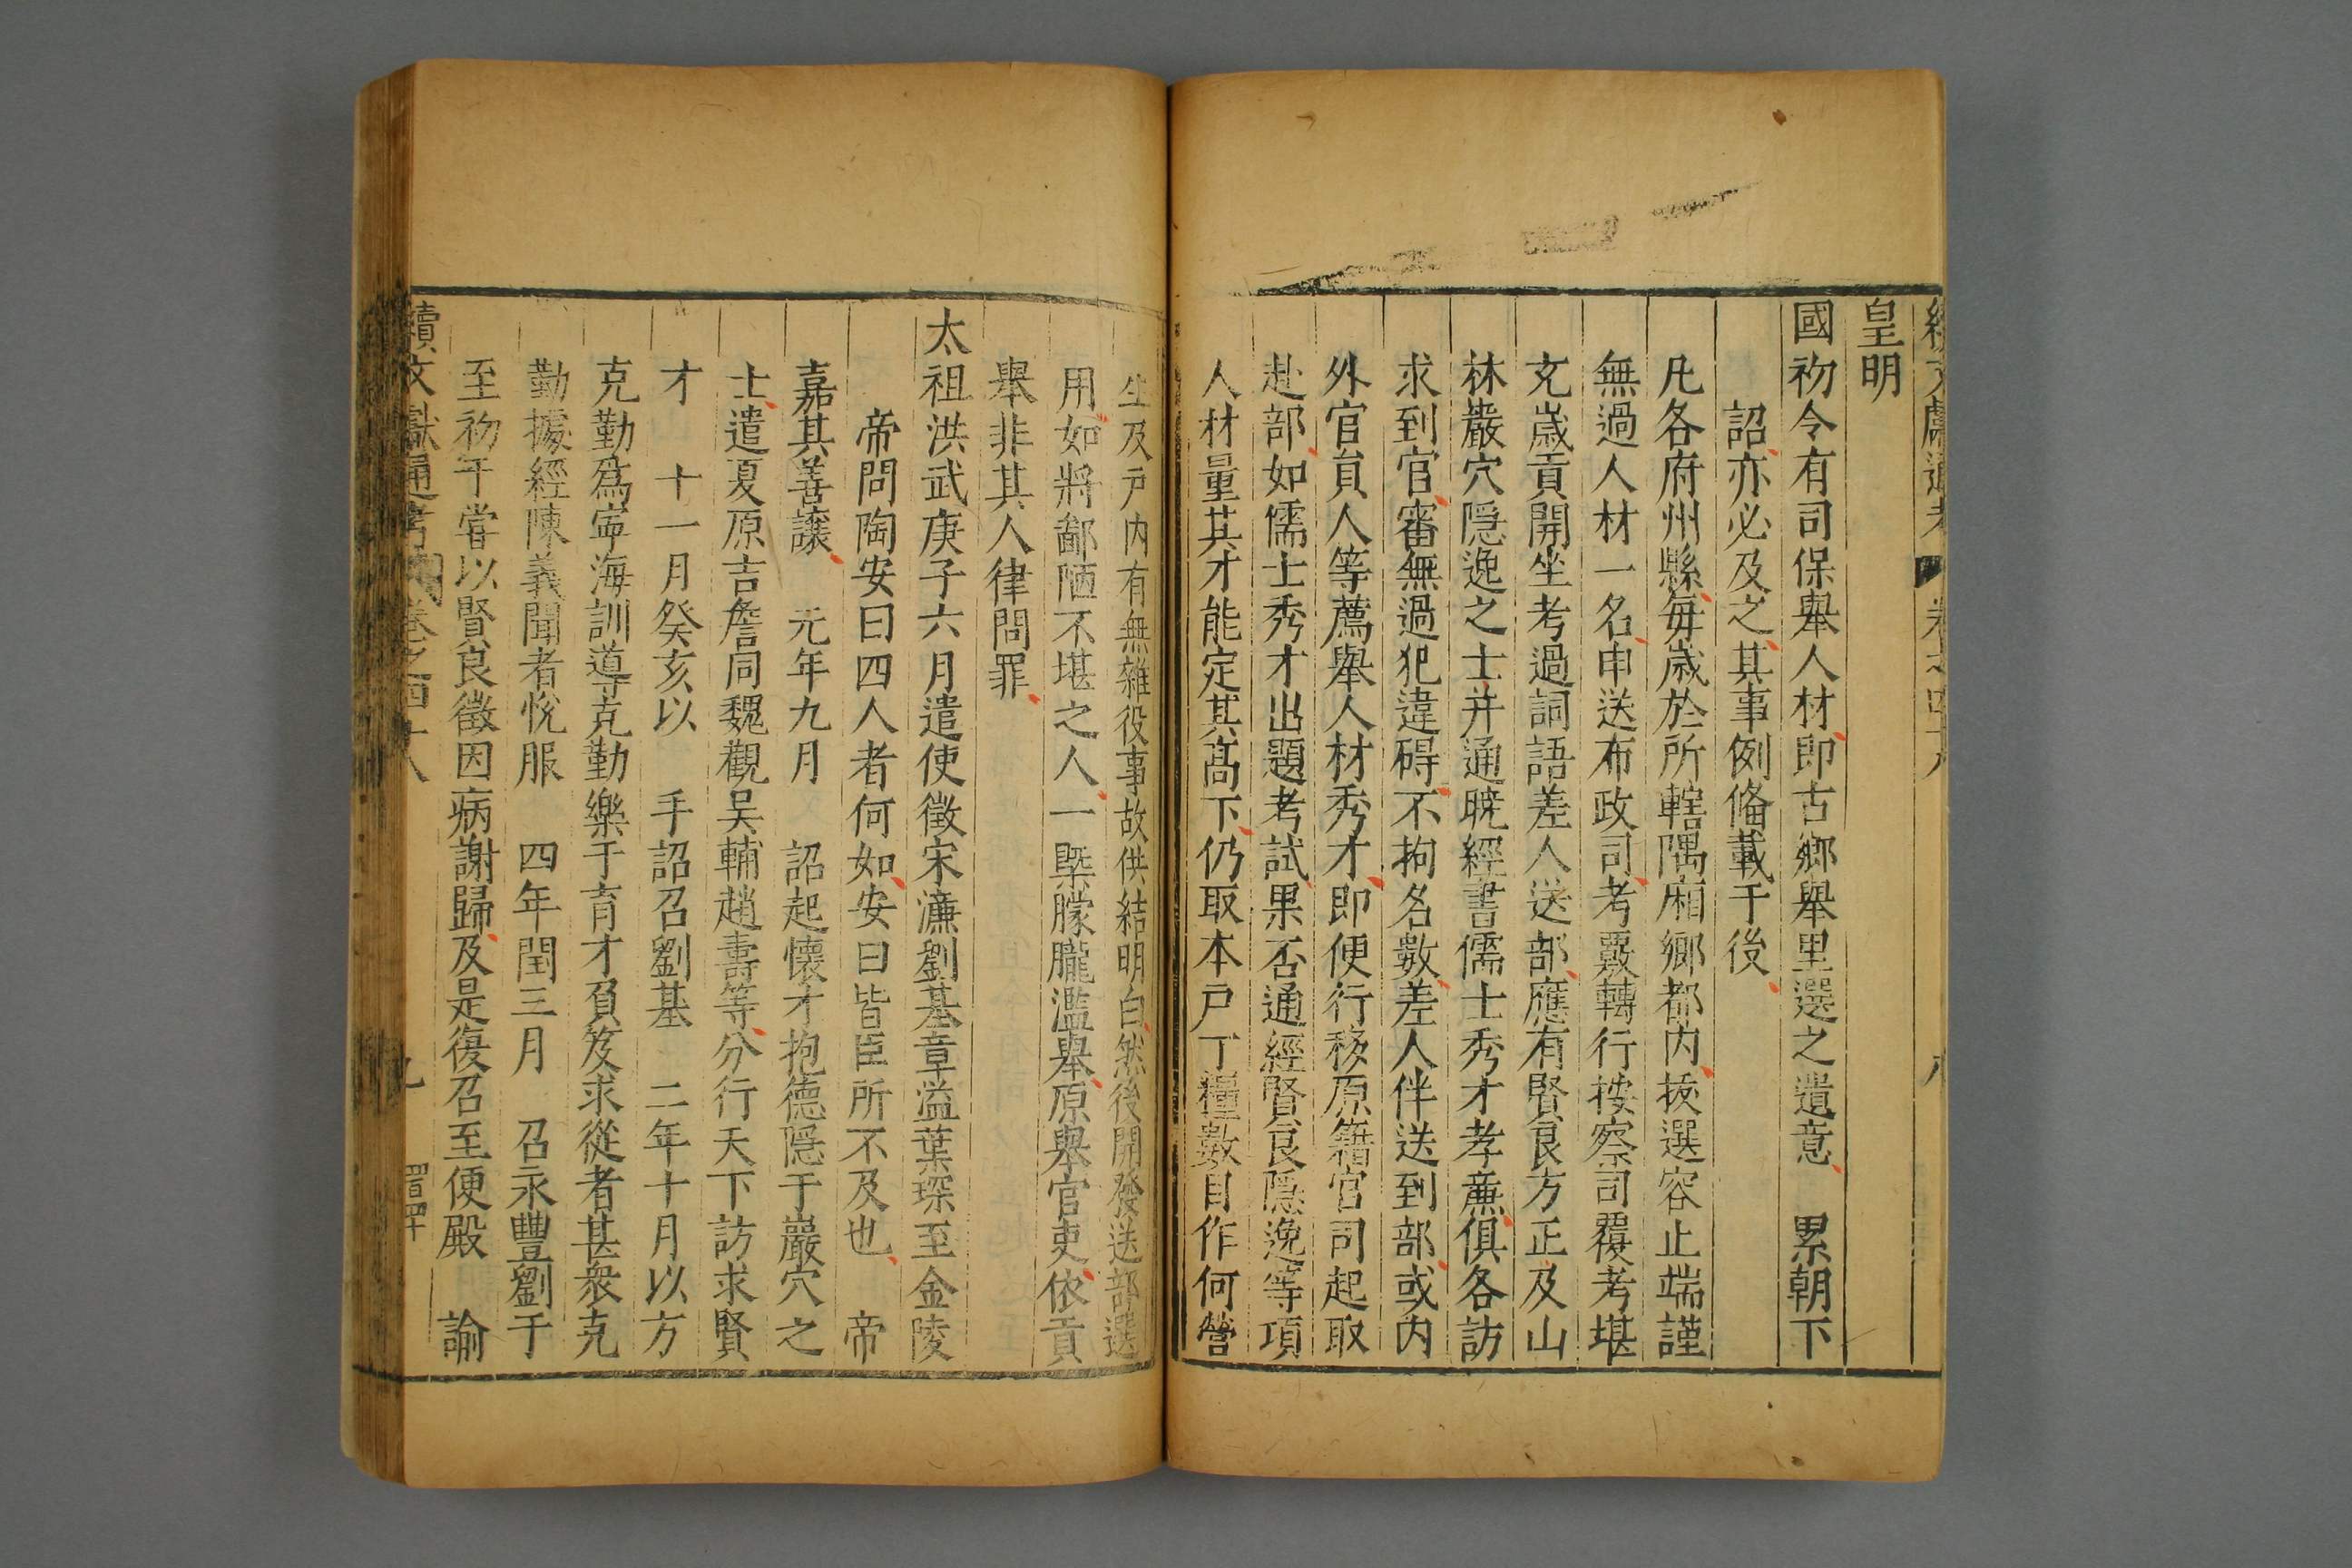 續文獻通考 卷之四十八 八
皇明
國初令有司保舉人材即古鄉舉里選之遺意 累朝下
詔亦必及之其事例俻載于後
凡各府州縣每歲於所轄隅廂鄉都内拔選容止端謹
無過人材一名申送布政司考覈轉行按察司覆考堪
充歲貢開坐考過詞語差人送部應有賢良方正及山
林巖穴隱逸之士并通曉經書儒士秀才孝亷俱各訪
求到官審無過犯違碍不拘名數差人伴送到部或内
外官員人等薦舉人材秀才即便行移原籍官司起取
赴部如儒士秀才出題考試果否通經賢良隱逸等項
人材量其才能定其髙下仍取本戸丁糧數目作何營
生及戸内有無雜役事故供結明白然後開發送部選
用如將鄙陋不堪之人一槩朦朧濫舉原舉官吏依貢
舉非其人律問罪
太祖洪武庚子六月遣使徵宋濓劉基章溢葉琛至金陵
帝問陶安曰四人者何如安曰皆臣所不及也 帝
嘉其善讓 元年九月 詔起懷才抱德隱于巖穴之
士遣夏原吉詹同魏觀吴輔趙壽等分行天下訪求賢
才 十一月癸亥以 手詔召劉基 二年十月以方
克勤爲寜海訓導克勤樂于育才負笈求從者甚衆克
勤據經陳義聞者悅服 四年閏三月 召永豐劉于
至初于嘗以賢良徵因病謝歸及是復召至便殿 諭
續文獻通考 卷之四十八 九